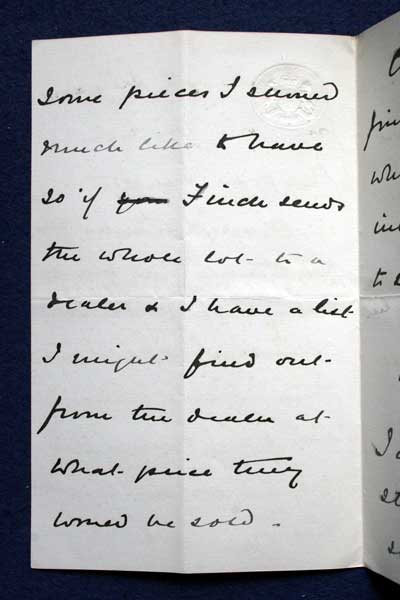 Some pieces I should
much like to have
so if you Finch sends
the whole lot to a
dealer & I have a list
I might find out
from the dealer at
what price they
would be sold.